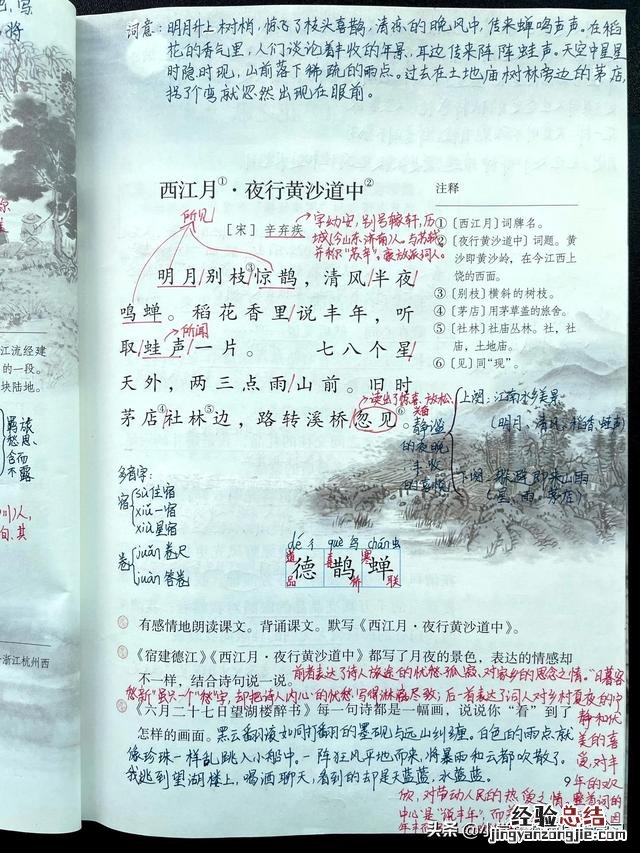 词意：明月升上树梢，惊飞了枝头喜鹊，清凉的晚风中，传来蝉鸣声声。在稻
花的香气里，人们谈论着丰收的年景，耳边传来阵阵蛙声。天空中星星
时隐时现，山前落下稀疏的雨点。过去在土地庙树林旁边的茅店，
拐了个弯就忽然出现在眼前。
西江月①·夜行黄沙道中②
所见
［宋］辛弃疾
字幼安，别号稼轩，历
城（今山东济南）人。与苏轼
并称“苏辛”。豪放派词人。
明月/别枝③/惊鹊，清风/半夜/
鸣蝉。稻花香里/说丰年，听
所闻
取/蛙声/一片。 七八个星/
天外，两三点雨/山前。旧时
茅店④/社林⑤/边，路转溪桥/忽见⑥。
注释
①［西江月］词牌名。
②［夜行黄沙道中］词题。黄
沙即黄沙岭，在今江西上
饶的西面。
③［别枝］横斜的树枝。
④［茅店］用茅草盖的旅舍。
⑤［社林］社庙丛林。社，社
庙，土地庙。
⑥［见］同“现”。
读出了惊喜、放松
静谧
的夜晚
丰收
的喜悦
上阕：江南水乡美景
（明月、清风、稻香、蛙声）
（星、雨、茅店）
江流经建
的一段。
块陆地。
羁旅
愁思，
含而
不露
多音字：
宿
sù住宿
xiǔ一宿
xiù星宿
卷
juǎn卷尺
juàn答卷
dé彳 què鸟 chán虫
德 鹊 蝉
品 喜 寒 联
有感情地朗读课文。背诵课文。默写《西江月·夜行黄沙道中》。
《宿建德江》《西江月·夜行黄沙道中》都写了月夜的景色，表达的情感却
不一样，结合诗句说一说。
前者表达了诗人旅途的忧愁、孤寂，对家乡的思念之情。“日暮客
愁新”虽只一个“愁”字，却把诗人内心的忧愁写得淋漓尽致；后一首表达了词人对乡村夏夜的宁
静和优
美的喜
爱，对丰
年的欢
欣，对劳动人民的热爱之情。整首词的
中心是“说丰年”，
《六月二十七日望湖楼醉书》每一句诗都是一幅画，说说你“看”到了
怎样的画面。
黑云翻滚如同打翻的墨砚与远山纠缠。白色的雨点就
像珍珠一样乱跳入小船中。一阵狂风平地而来，将暴雨和云都吹散了。
我逃到望湖楼上，喝酒聊天，看到的却是天蓝蓝，水蓝蓝。
浙江杭州西
9
头条
经验总结